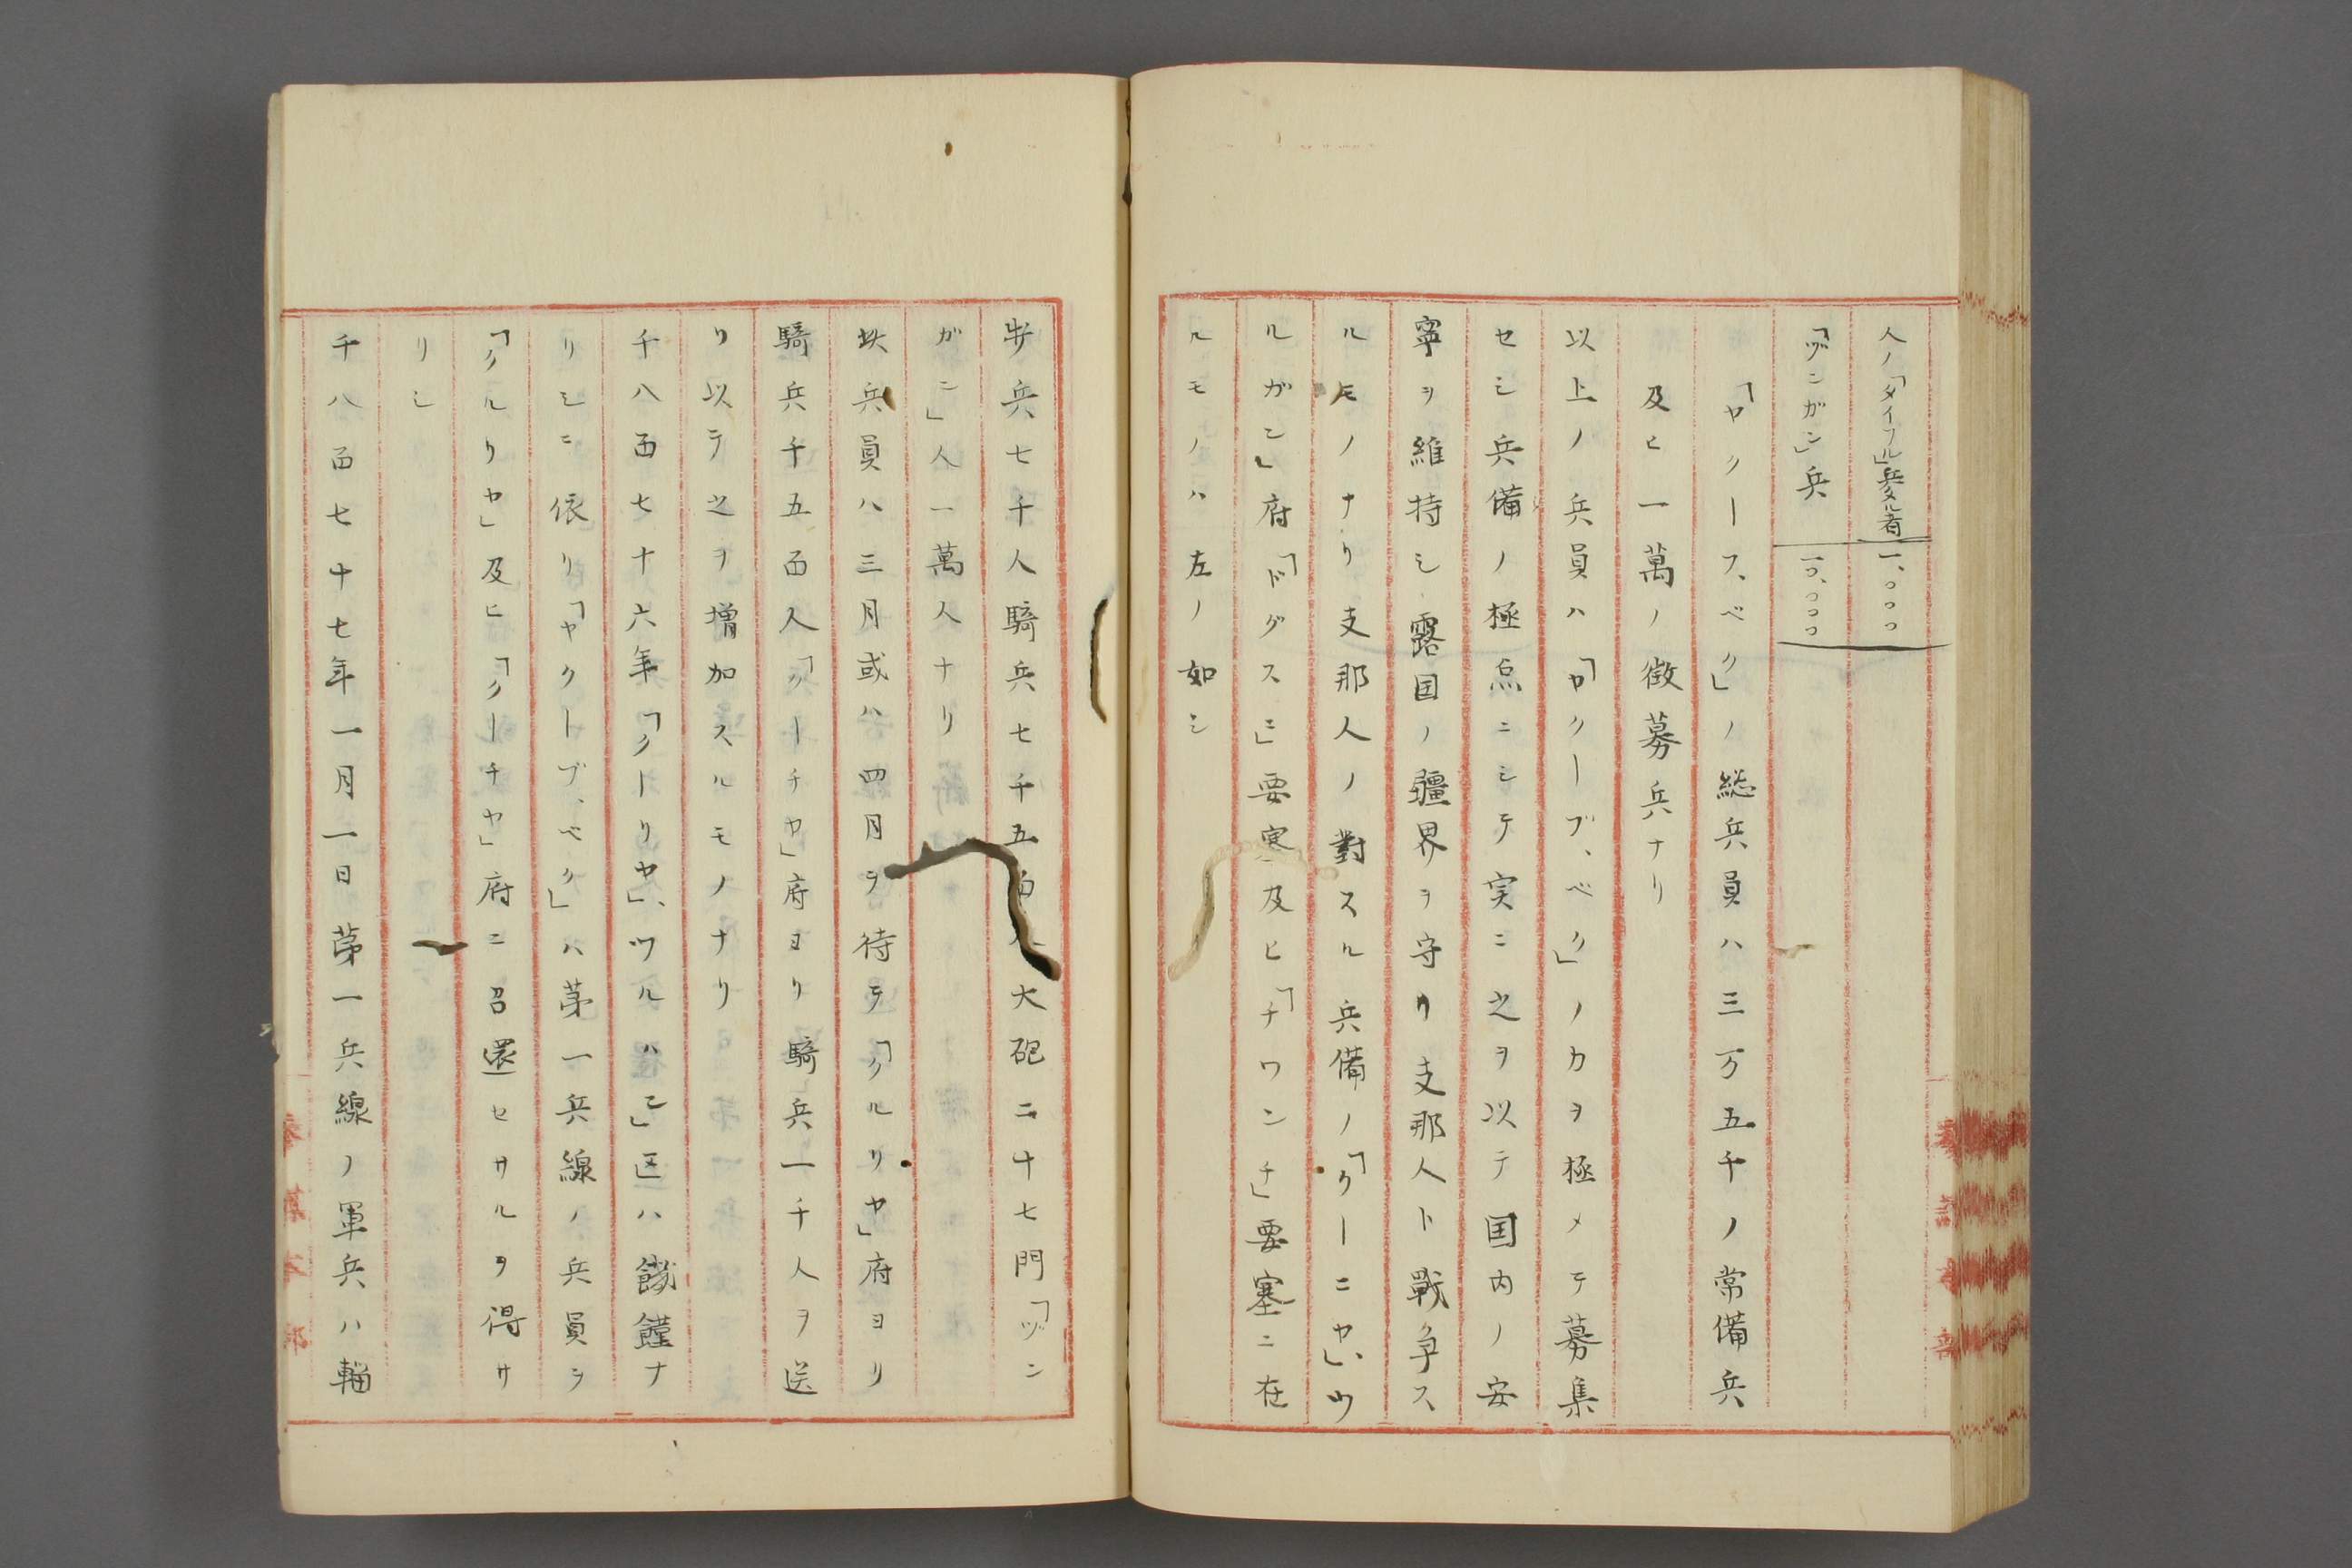 人ノ「タイフル」兵タル者 一、〇〇〇
「ヅンガン」兵 一〇、〇〇〇
「ヤクーブ、ベク」ノ総兵員ハ三万五千ノ常備兵
及ヒ一萬ノ徴募兵ナリ
以上ノ兵員ハ「ヤクーブ、ベク」ノカヲ極メテ募集
セシ兵備ノ極点ニシテ実ニ之ヲ以テ国内ノ安
寧ヲ維持シ露国ノ疆界ヲ守リ支那人ト戰争ス
ルモノナリ支那人ノ對スル兵備ノ「クーニヤ」、ウ
ルガン」府「ドグスン」要塞及ヒ「チワンチ」要塞ニ在
ルモノハ左ノ如シ
歩兵七千人騎兵七千五百人大砲二十七門「ヅン
ガン」人一萬人ナリ
此兵員ハ三月或ハ四月ヲ待テ「クルリヤ」府ヨリ
騎兵千五百人「クーチヤ」府ヨリ騎兵一千人ヲ送
リ以テ之ヲ増加スルモノナリ
千八百七十六年「クーリヤ」、ツルハン」区ハ饑饉ナ
リシニ依リ「ヤクーブ、ベク」ハ苐一兵線ノ兵員ヲ
「クルリヤ」及ヒ「クーチヤ」府ニ召還セサルヲ得サ
リシ
千八百七十七年一月一日苐一兵線ノ軍兵ハ輜